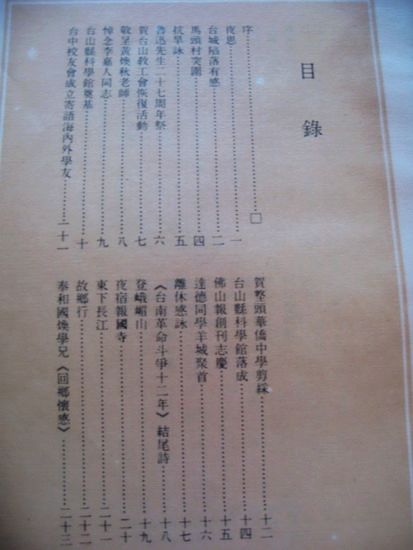 目錄
序……………□
夜思……………一
台城陷落有感……………二
馬頭村突圍……………四
抗旱詠……………五
魯迅先生二十七周年祭……………六
賀台山教工會恢復活動……………七
敬呈黃煥秋老師……………八
悼念李嘉人同志……………九
台山縣科學館奠基……………十
台中校友會成立寄語海內外學友……………二十一
賀墪頭華僑中學剪綵……………十二
台山縣科學館落成……………十四
佛山報創刊志慶……………十五
達德同學羊城聚首……………十六
離休感詠……………十七
《台南革命斗爭十二年》結尾詩……………十八
登峨嵋山……………十九
夜宿報國寺……………二十
東下長江……………二十一
故鄉行……………二十二
奉和國煥學兄《回鄉懷感》……………二十三